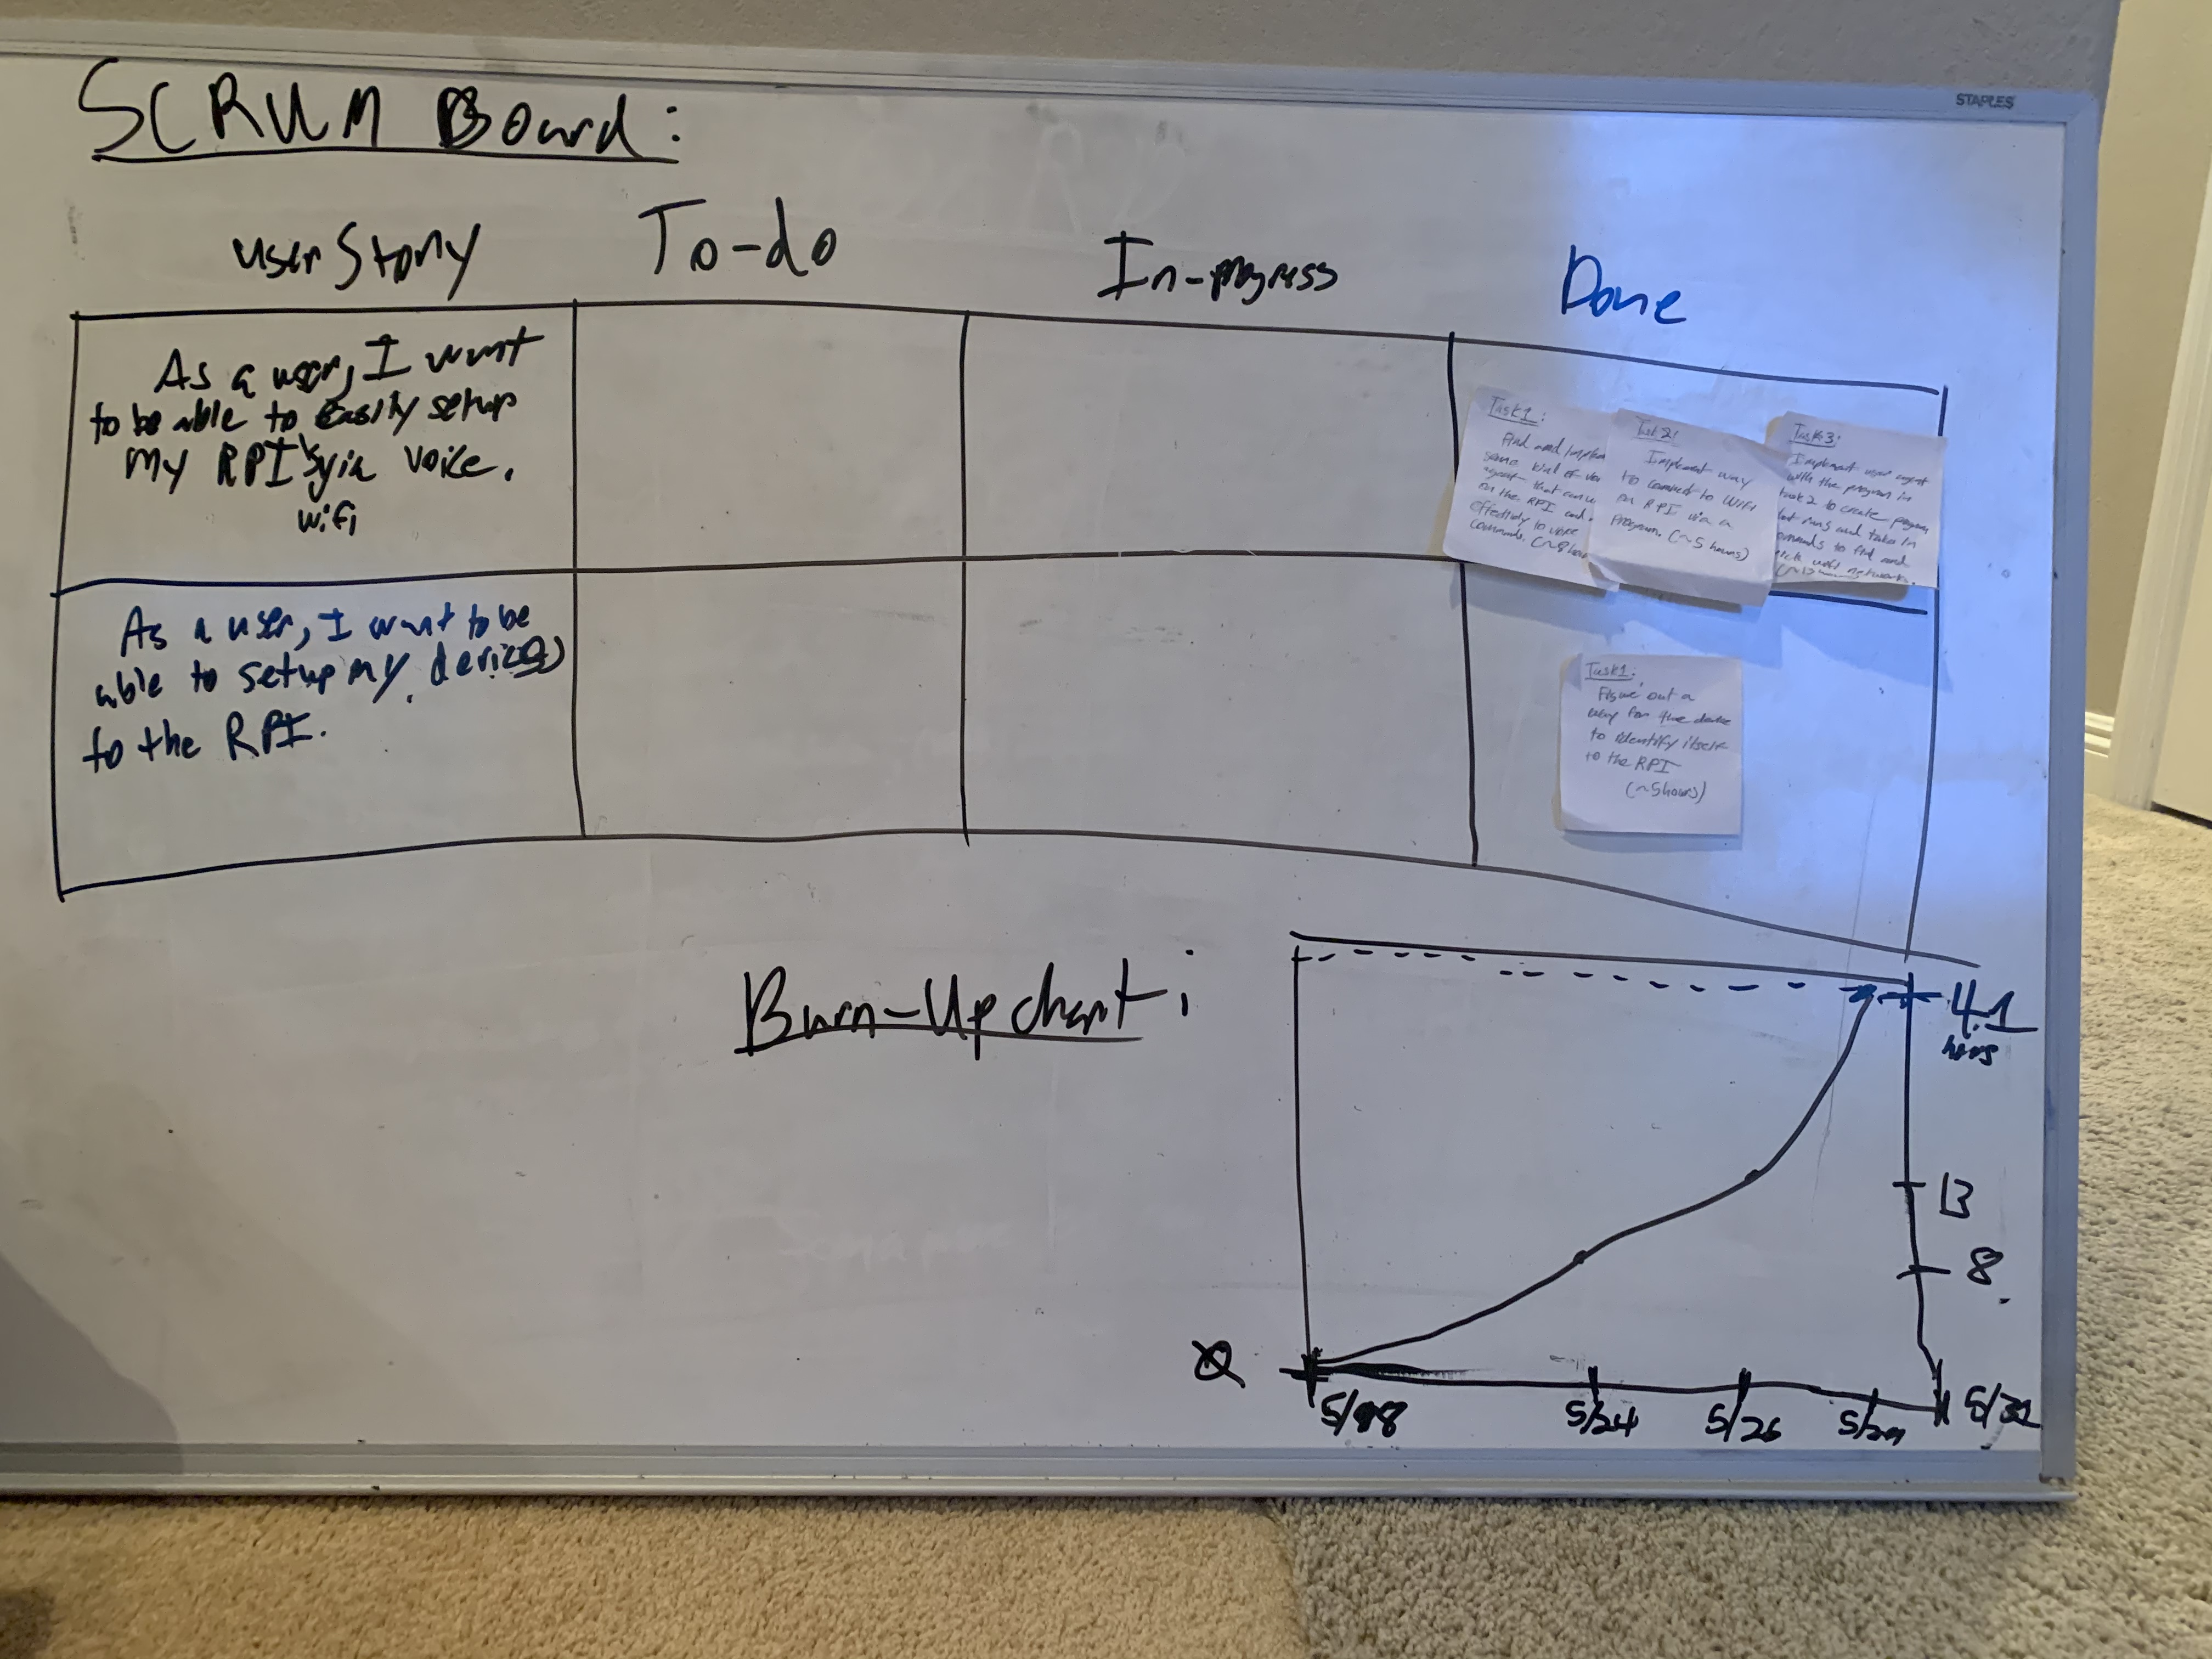 STAPLES
SCRUM Board:
user Story
To-do
In-progress
Done
As a user, I want
to be able to easily setup
my RPI's via voice.
wifi
Task 1:
Find and/implem
some kind of
agent that can
on the RPI and
effectively to voice
commands. (~8 hou
Task 2:
Implement way
to connect to WiFi
on RPI via a
program. (~5 hours)
Task 3:
Implement user agent
with the program in
task 2 to create program
that runs and take in
to find and
wifi network.
As a user, I want to be
able to setup my device(s)
to the RPI.
Task 1:
Figure out a
way for the device
to identify itself
to the RPI
(~5 hours)
Burn-Up chart:
41
hours
13
8
0
5/18
5/24
5/26
5/29
5/31